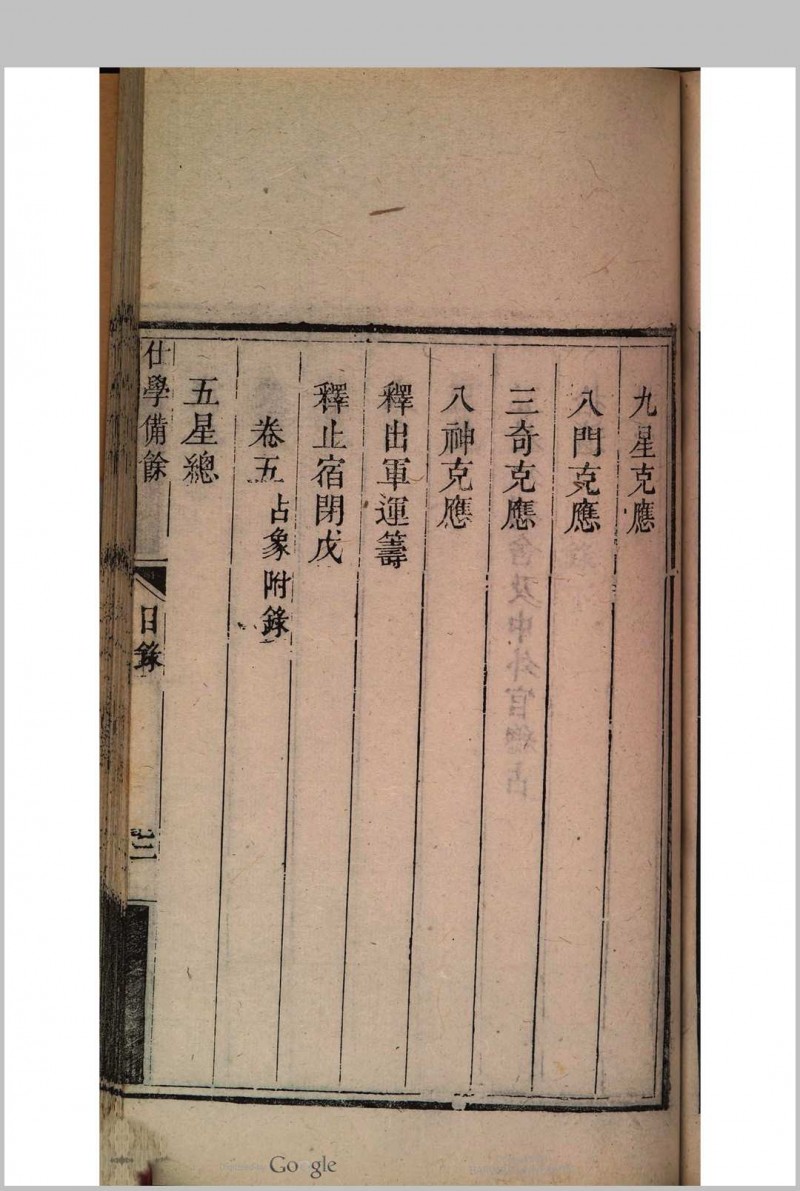 九星克應
八門克應
三奇克應
八神克應
釋出軍運籌
釋止宿閉戊
卷五 占象附錄
五星總
仕學備餘
目錄
二
Google